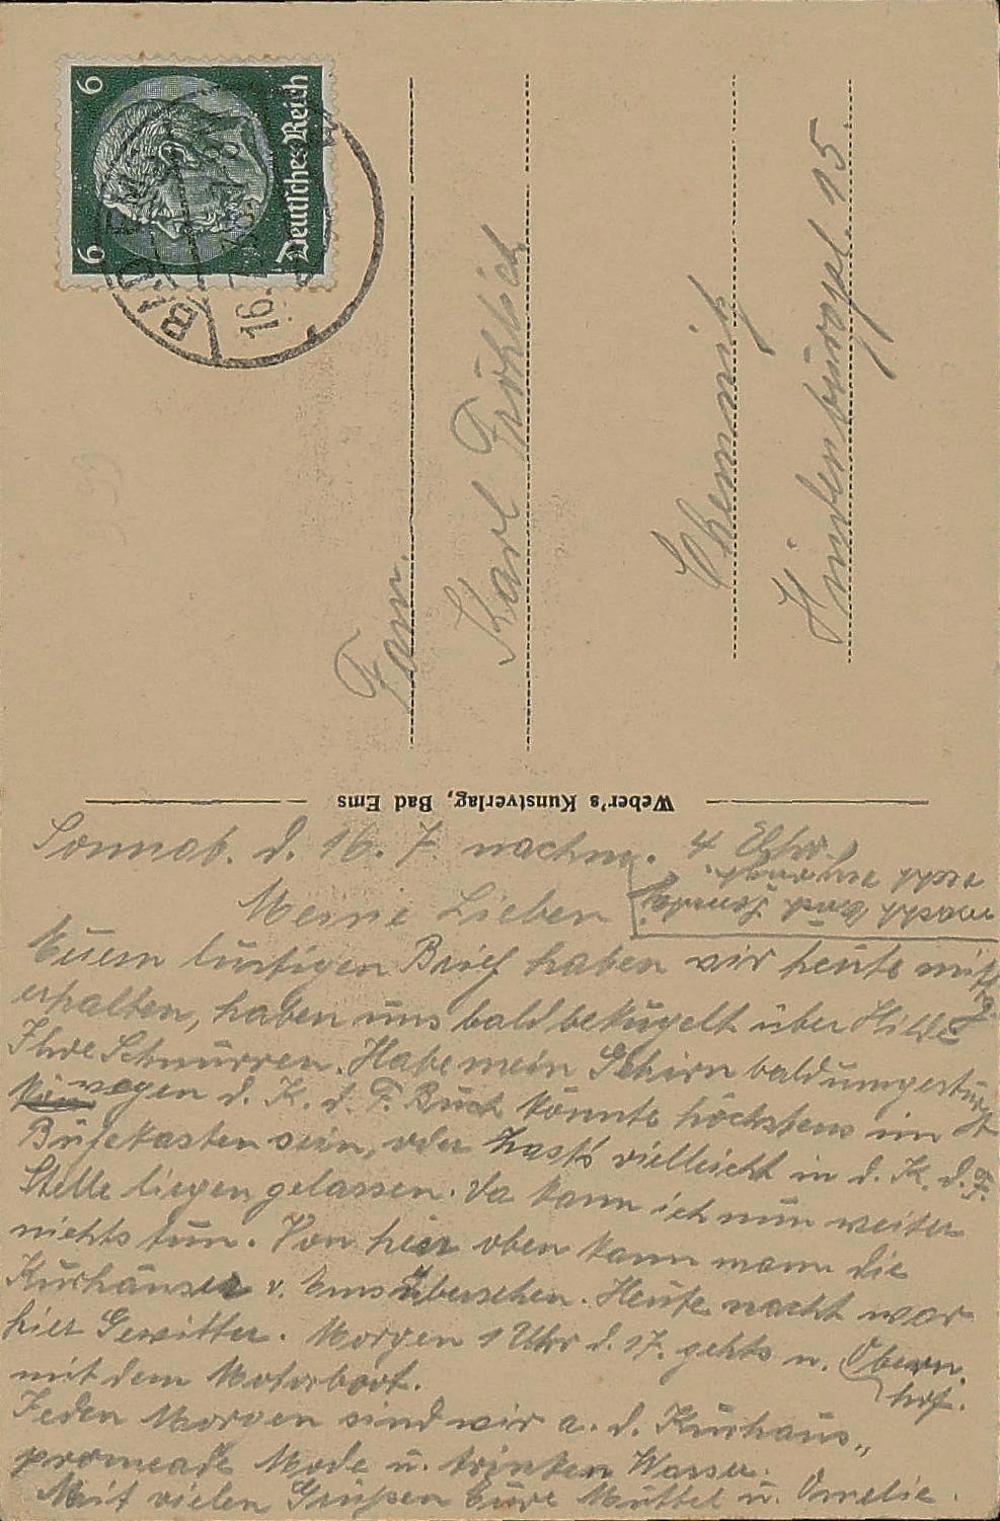 6 Deutsches Reich 6
BAD EMS
16.7.38.
Fam.
Karl Fröhlich
Chemnitz
Hindenburgpl. 15.
Weber's Kunstverlag, Bad Ems
Sonnab. d. 16. 7. nachm. 4 Uhr.
macht Euch Sonntag
recht
Meine Lieben
Euern lustigen Brief haben wir heute mittag
erhalten, haben uns bald bekugelt über Hilde
Ihre Schnurren. Habe mein Gehirn bald umgestürzt
wegen d. K. d. F. Buch könnte höchstens im
Büfekasten sein, oder hast's vielleicht in d. K. d. F.
Stelle liegen gelassen. Da kann ich nun weiter
nichts tun. Von hier oben kann mann die
Kurhäuser v. Ems übersehen. Heute nacht war
hier Gewitter. Morgen 1 Uhr d. 17. gehts n. Obern.
hof.
mit dem Motorboot.
Jeden Morgen sind wir a. d. Kurhaus„
promeade Mode u. trinken Wasser.
Mit vielen Grüßen Eure Muttel u. Omelie.